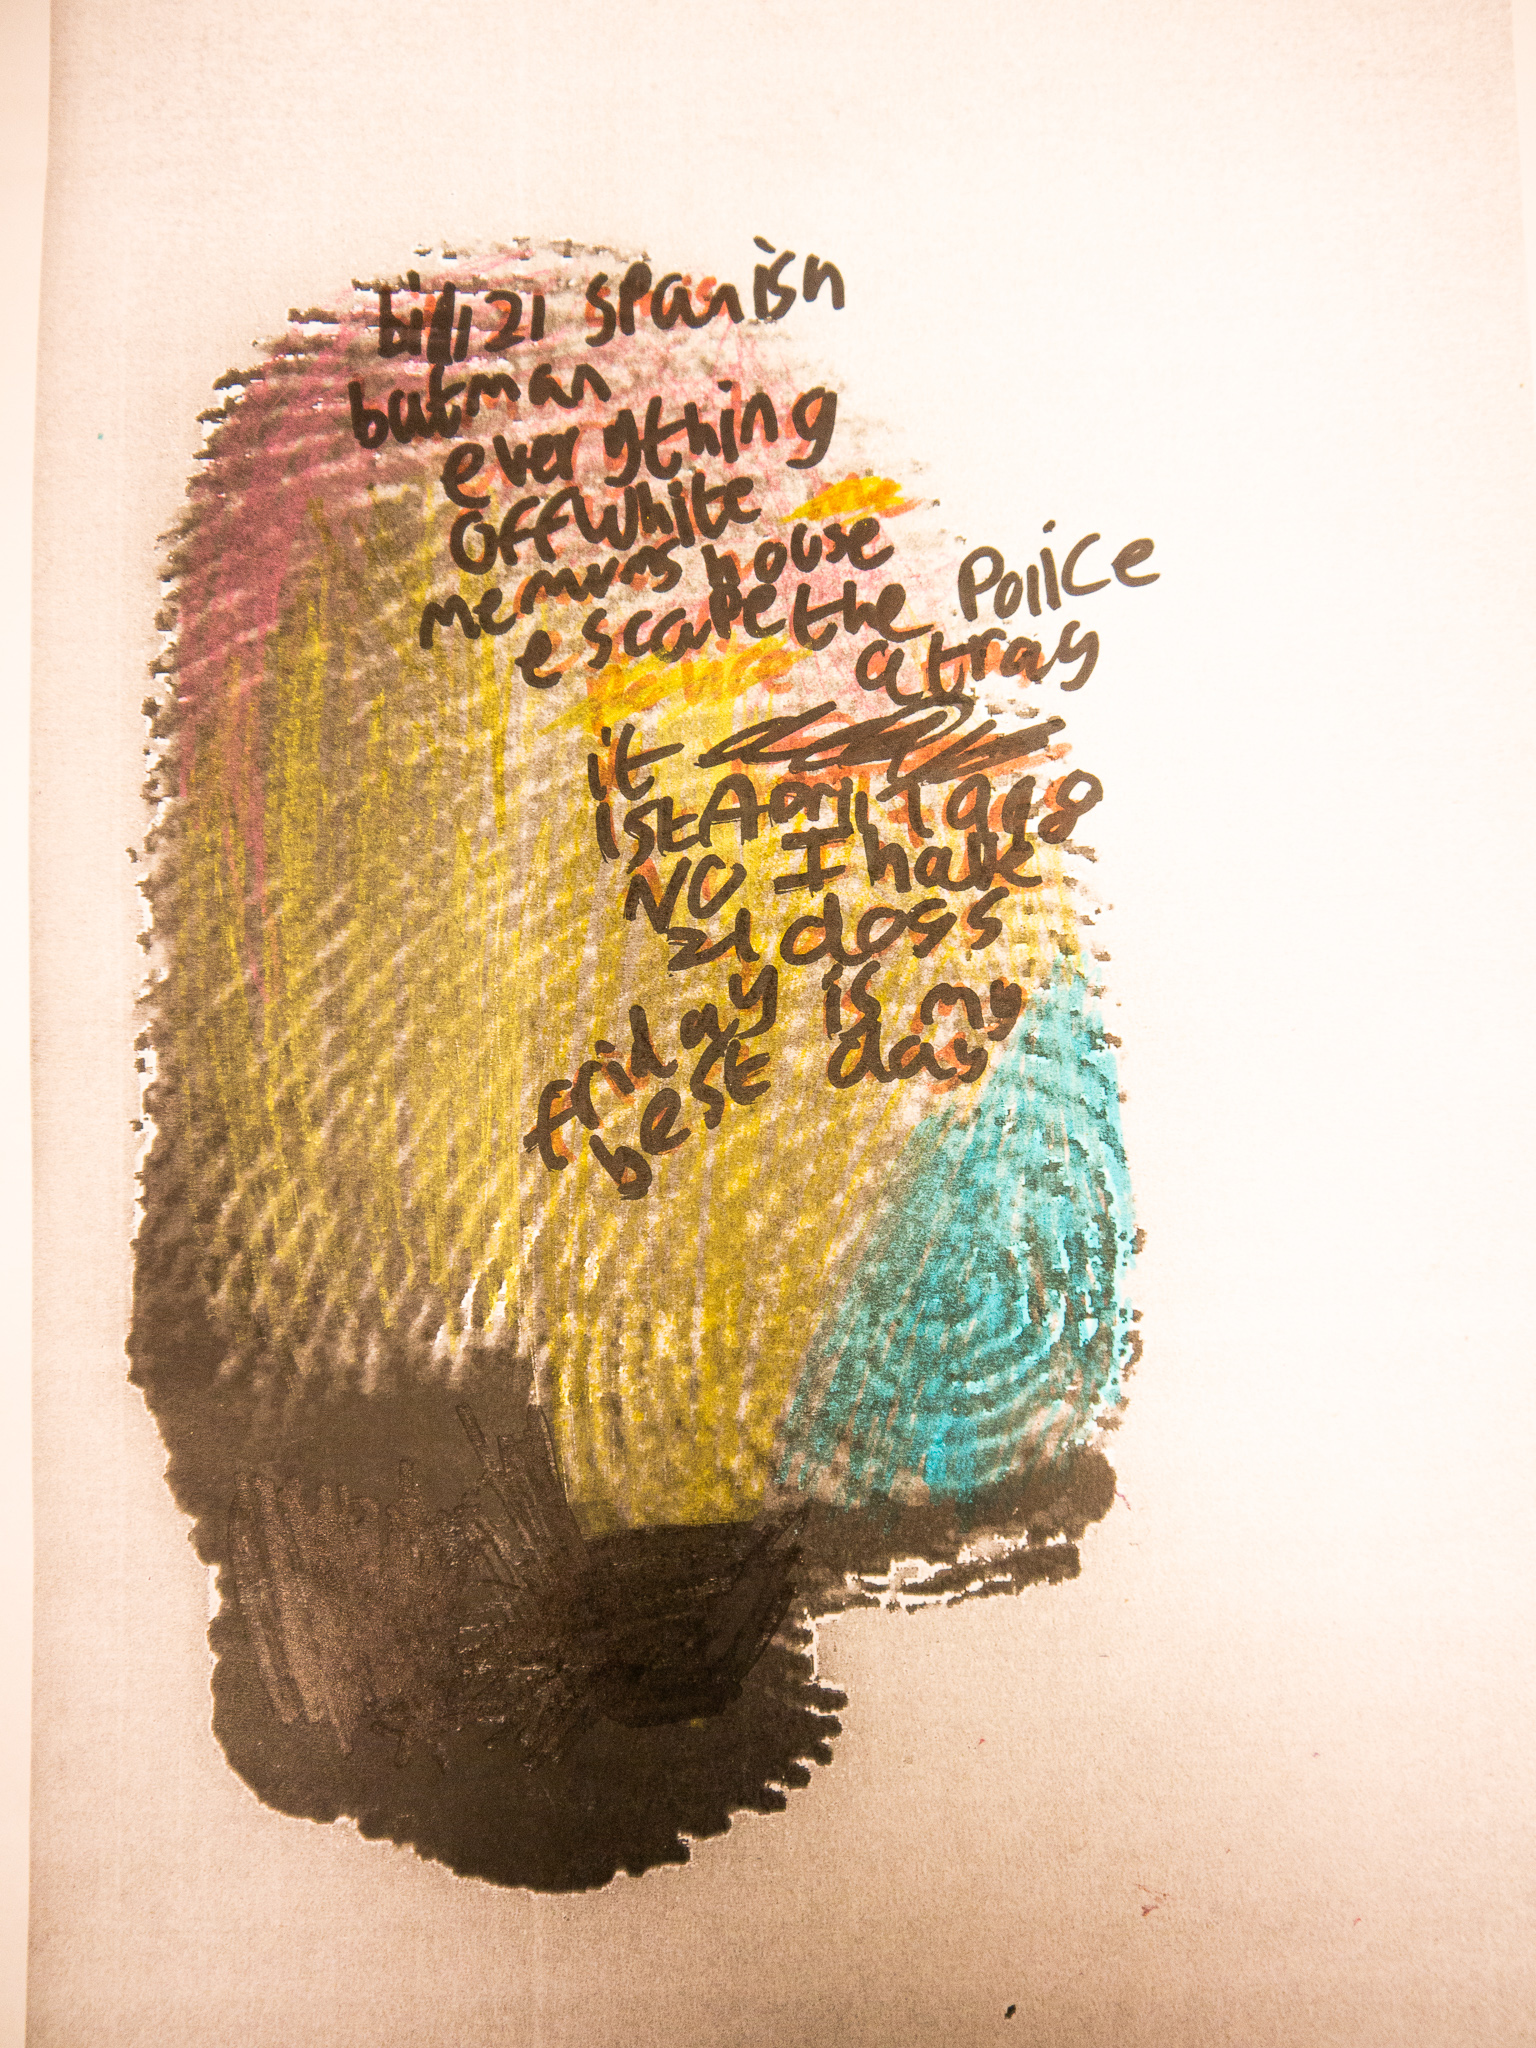 bill 21 spanish
batman
everything
offwhite
me mums house
escape the Police
a tray
it
1st April 1998
NO I have
21 dogs
friday is my
best day